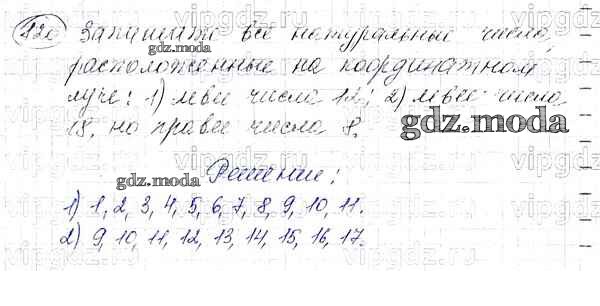 120 Запишите все натуральные числа,
расположенные на координатном
луче: 1) левее числа 12; 2) левее числа
18, но правее числа 8.
gdz.moda
Решение:
1) 1, 2, 3, 4, 5, 6, 7, 8, 9, 10, 11.
2) 9, 10, 11, 12, 13, 14, 15, 16, 17.